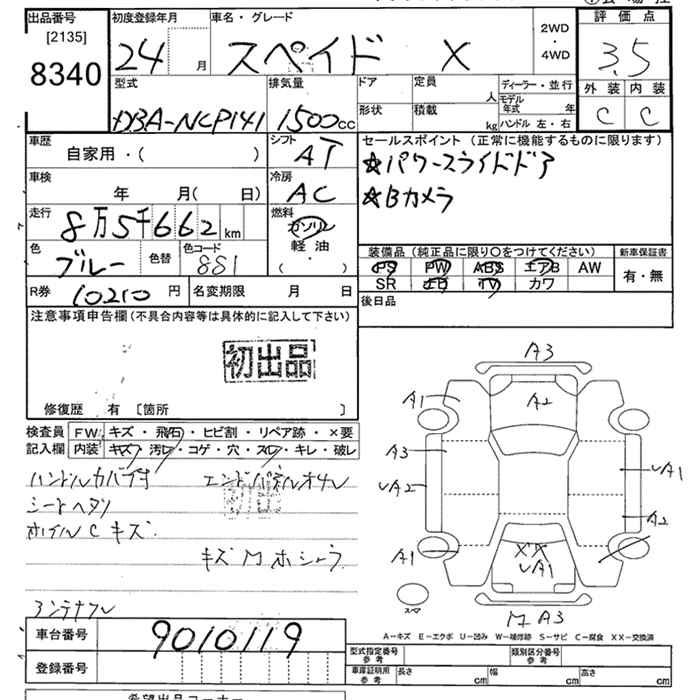 出品番号 初度登録年月 車名・グレード 評価点
[2135]
8340
24 月 スペイド X 2WD・4WD 3.5
外装 内装
C C
型式 排気量 ドア 定員 ディーラー・並行
DBA-NCP141 1500cc 人 モデル年式 年
形状 積載 kg ハンドル 左・右
車歴 シフト セールスポイント (正常に機能するものに限ります)
自家用・( ) AT ☆パワースライドドア
車検 冷房
年 月( 日) AC ☆Bカメラ
走行 燃料
8万5千662km ガソリン
軽油
( ・ )
色 色替 色コード
ブルー 881
装備品 (純正品に限り○をつけてください) 新車保証書
PS PW ABS エアB AW 有・無
SR TV カワ
R券 10210円 名変期限 月 日 後日品
注意事項申告欄(不具合内容等は具体的に記入して下さい)
初出品
修復歴 有 [箇所 ]
検査員 FW キズ・飛石・ヒビ割・リペア跡・×要
記入欄 内装 キズ・汚レ・コゲ・穴・スレ・キレ・破レ
シートヘタリ
ホイルC キズ
アンテナ
A3
A1 A2
A3
A2
A1
A2
A1
XX
A1
スマ
A3
A-キズ E-エクボ U-凹み W-補修跡 S-サビ C-腐食 XX-交換済
車台番号 9010119
型式指定番号 参考 類別区分番号 参考
登録番号 車庫証明用 参考 長さ cm 幅 cm 高さ cm
希望出品コーナー